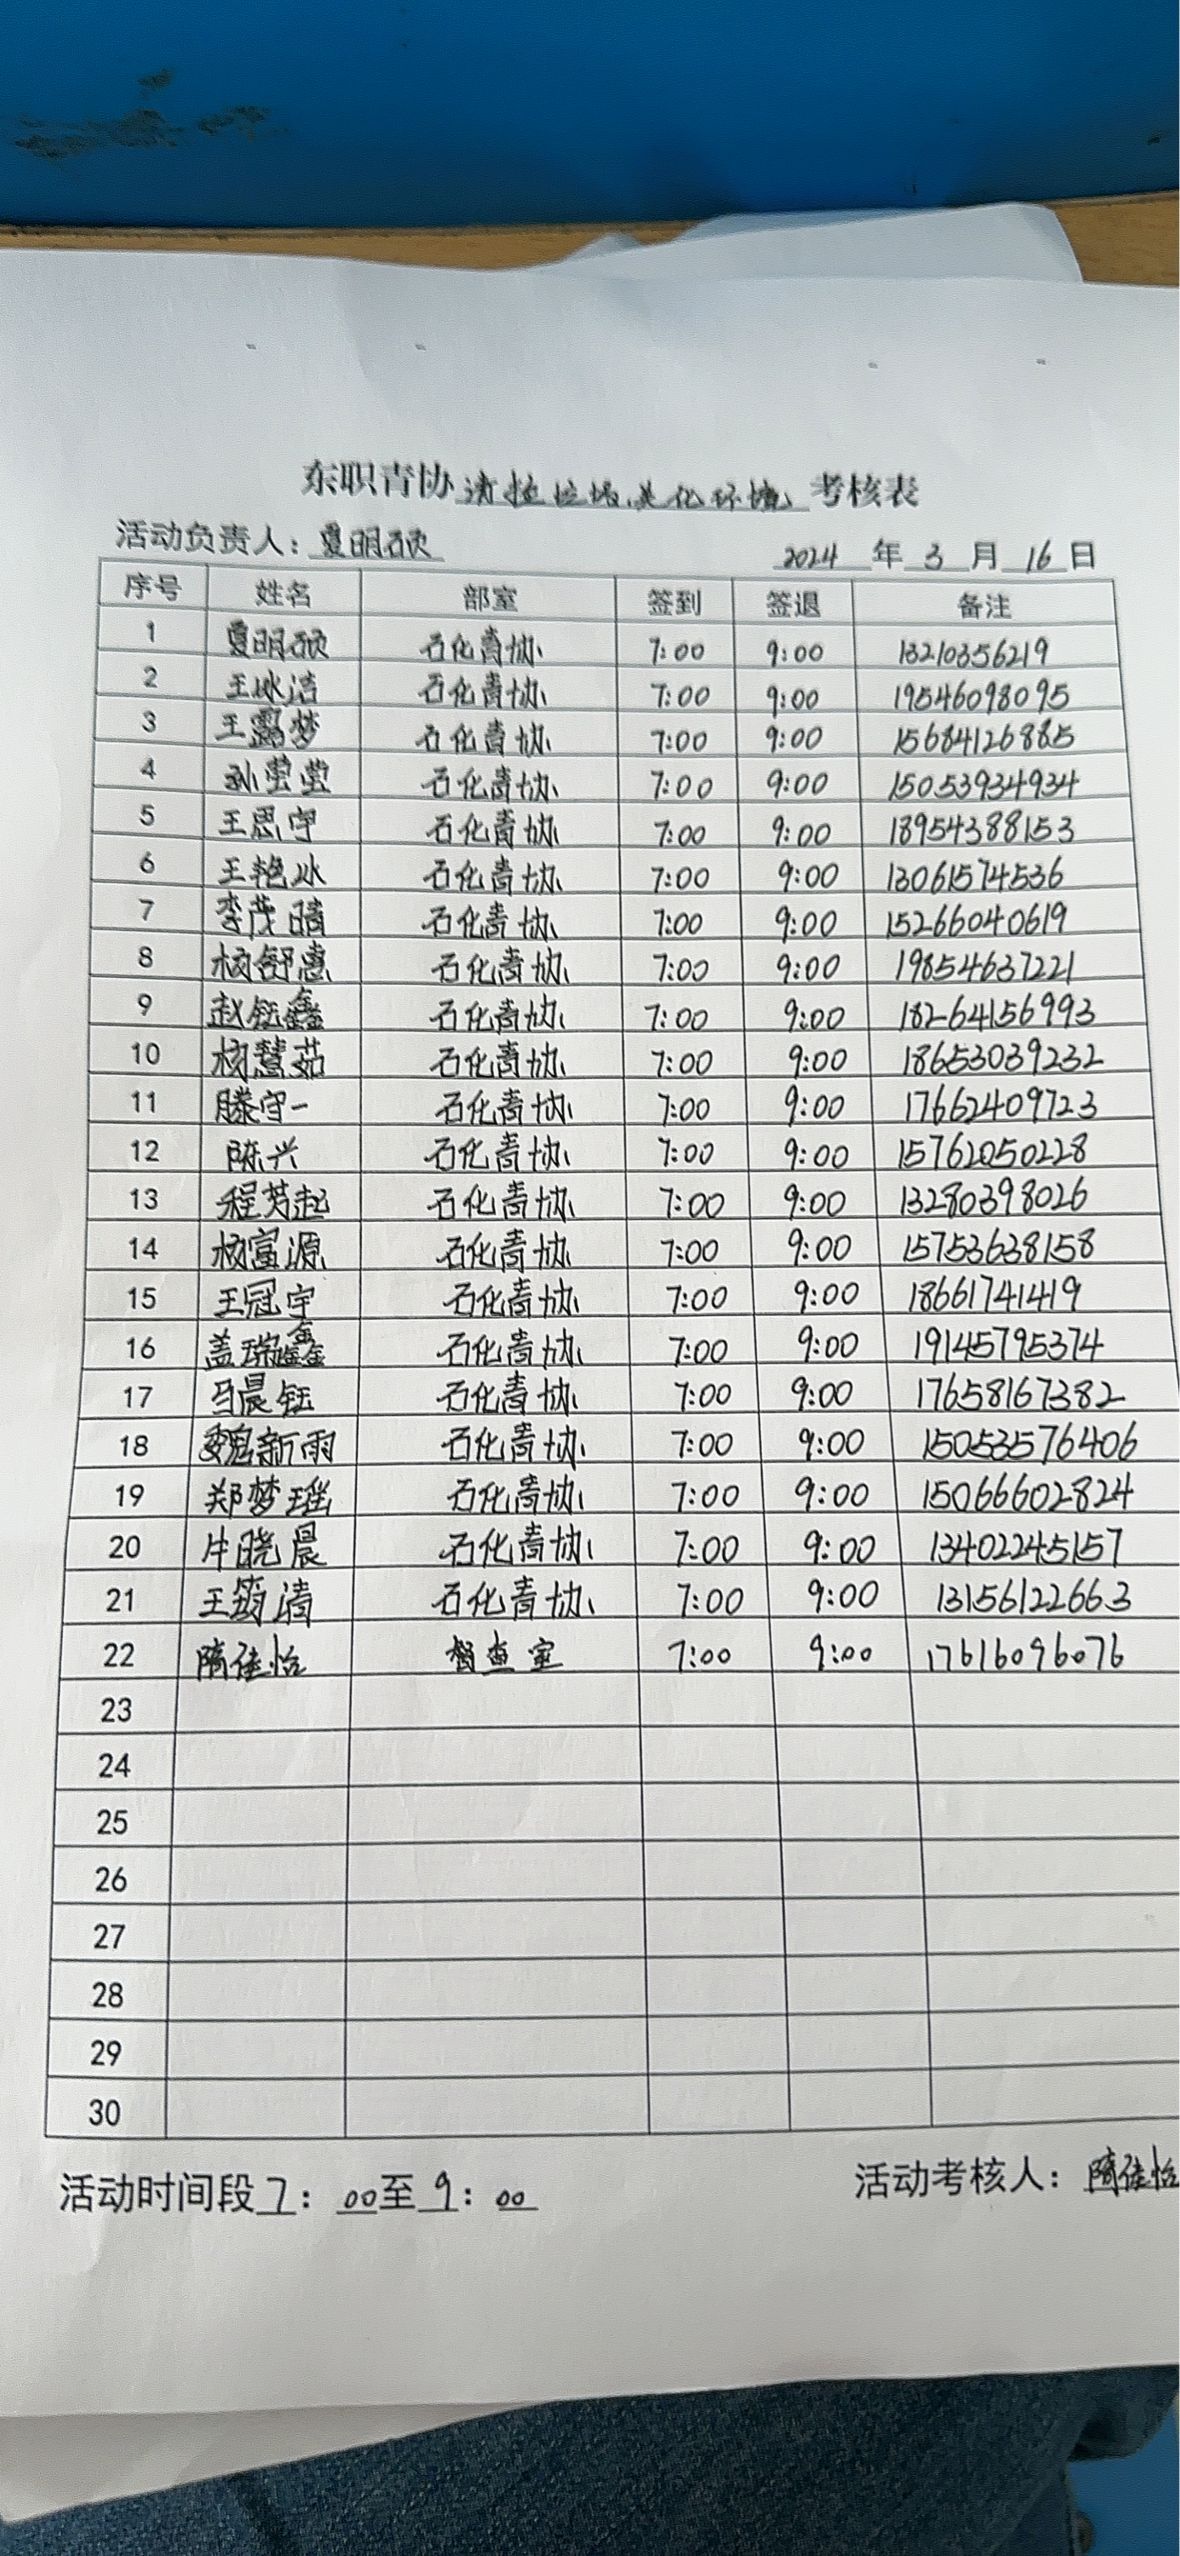 东职青协清捡垃圾,美化环境考核表
活动负责人：夏明硕
2024年3月16日
序号 姓名 部室 签到 签退 备注
1 夏明硕 石化青协 7:00 9:00 13210356219
2 王冰洁 石化青协 7:00 9:00 19546098095
3 王露梦 石化青协 7:00 9:00 15684126885
4 孙莹莹 石化青协 7:00 9:00 15053934934
5 王思宇 石化青协 7:00 9:00 18954388153
6 王艳冰 石化青协 7:00 9:00 13061574536
7 李茂晴 石化青协 7:00 9:00 15266040619
8 杨舒惠 石化青协 7:00 9:00 19854637221
9 赵钰鑫 石化青协 7:00 9:00 18264156993
10 杨慧茹 石化青协 7:00 9:00 18653039232
11 滕守一 石化青协 7:00 9:00 17662409723
12 陈兴 石化青协 7:00 9:00 15762050228
13 程芳起 石化青协 7:00 9:00 13280398026
14 杨富源 石化青协 7:00 9:00 15753638158
15 王冠宇 石化青协 7:00 9:00 18661741419
16 盖瑞鑫 石化青协 7:00 9:00 19145795374
17 马晨钰 石化青协 7:00 9:00 17658167382
18 魏新雨 石化青协 7:00 9:00 15053576406
19 郑梦瑶 石化青协 7:00 9:00 15066602824
20 牛晓晨 石化青协 7:00 9:00 13402245157
21 王筠清 石化青协 7:00 9:00 13156122663
22 隋佳怡 督查室 7:00 9:00 17616096076
23
24
25
26
27
28
29
30
活动时间段7：00至9：00
活动考核人：隋佳怡